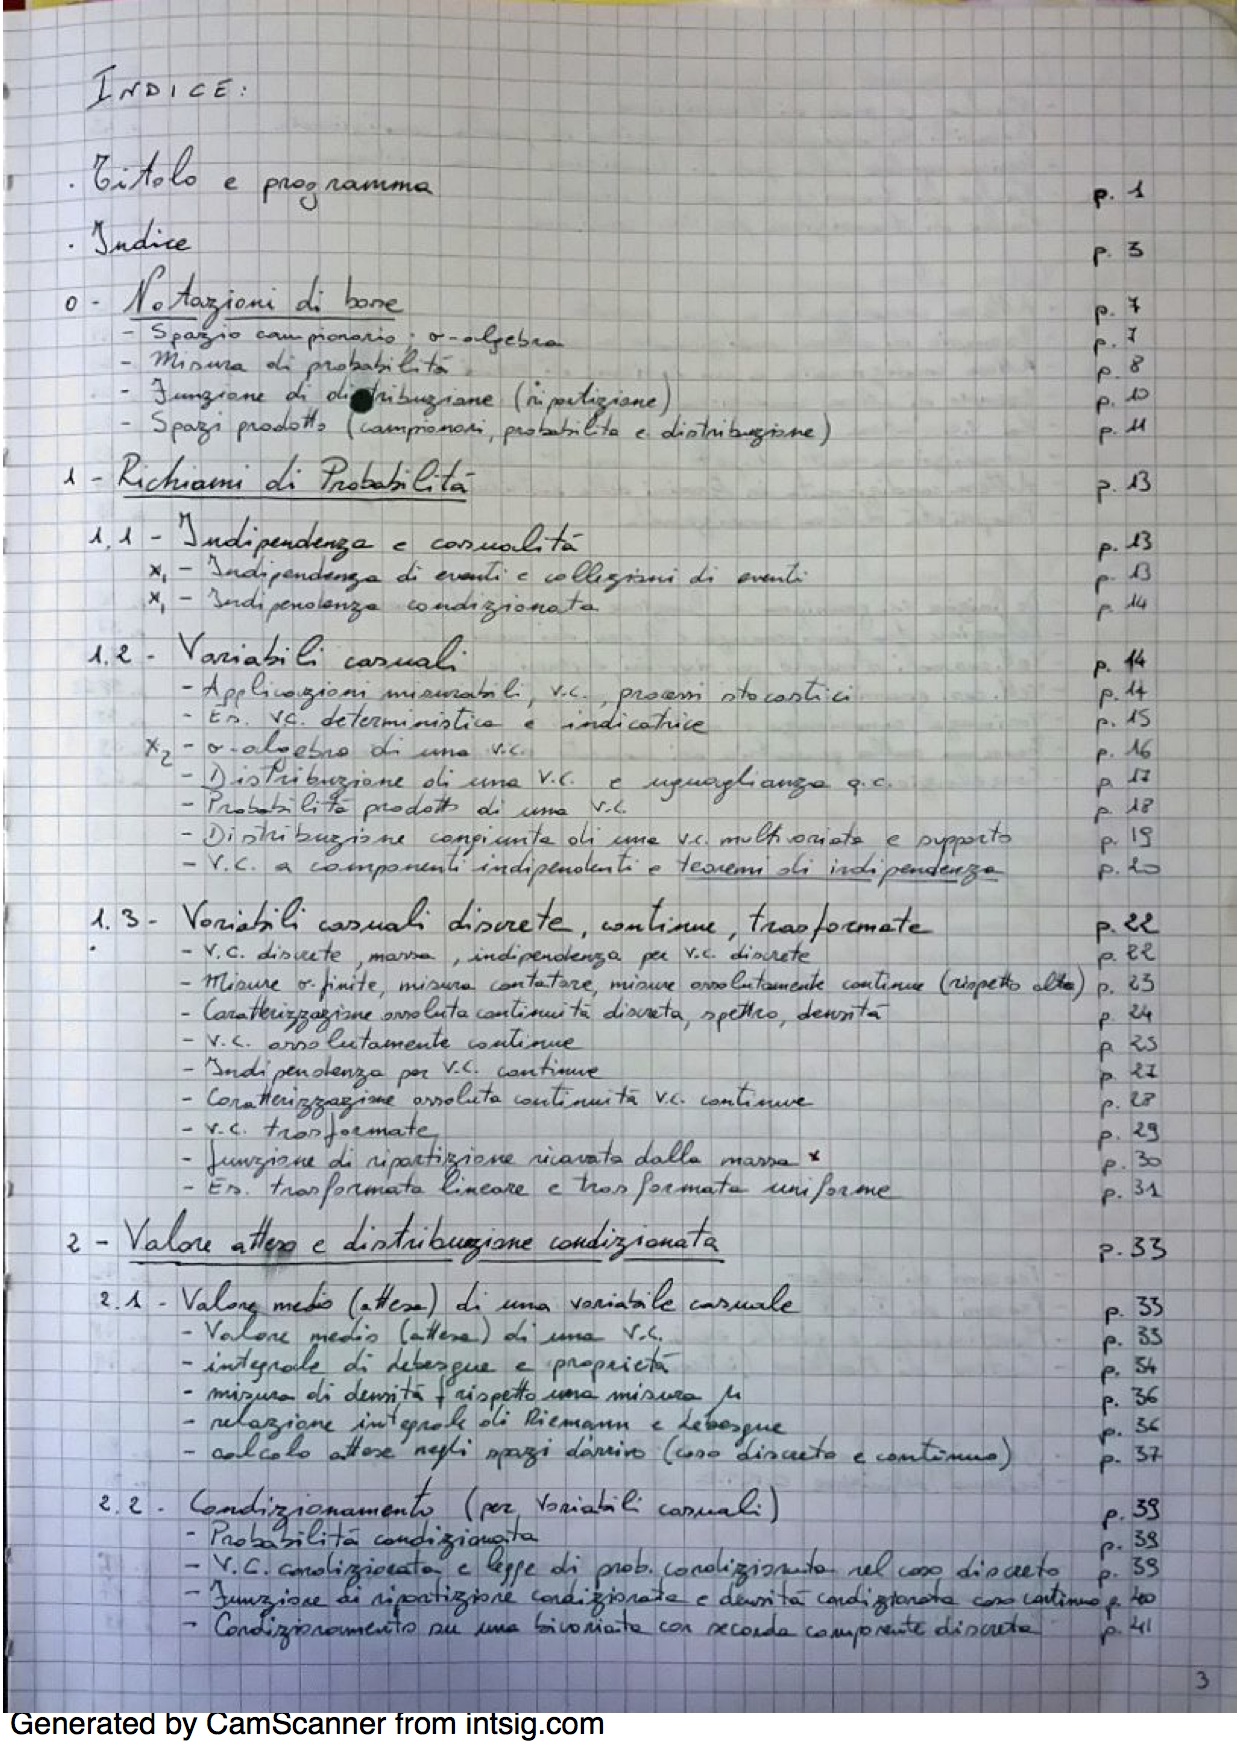 INDICE:
· Titolo e programma p. 1
· Indice p. 3
0 - Notazioni di base p. 7
- Spazio campionario; σ-algebra p. 7
- Misura di probabilità p. 8
- Funzione di distribuzione (ripartizione) p. 10
- Spazi prodotto (campionari, probabilità e distribuzione) p. 11
1 - Richiami di Probabilità p. 13
1.1 - Indipendenza e casualità p. 13
x₁ - Indipendenza di eventi e collezioni di eventi p. 13
x₁ - Indipendenza condizionata p. 14
1.2 - Variabili casuali p. 14
- Applicazioni misurabili, v.c., processi stocastici p. 14
- Es. v.c. deterministica e indicatrice p. 15
x₂ - σ-algebra di una v.c. p. 16
- Distribuzione di una v.c. e uguaglianza q.c. p. 17
- Probabilità prodotto di una v.c. p. 18
- Distribuzione congiunta di una v.c. multivariata e supporto p. 19
- V.C. a componenti indipendenti e teoremi di indipendenza p. 20
1.3 - Variabili casuali discrete, continue, trasformate p. 22
- V.C. discrete, massa, indipendenza per v.c. discrete p. 22
- Misure σ-finite, misura contatore, misure assolutamente continue (rispetto altra) p. 23
- Caratterizzazione assoluta continuità discreta, spettro, densità p. 24
- V.C. assolutamente continue p. 25
- Indipendenza per V.C. continue p. 27
- Caratterizzazione assoluta continuità v.c. continue p. 28
- V.C. trasformate p. 29
- funzione di ripartizione ricavata dalla massa x p. 30
- Es. trasformata lineare e trasformata uniforme p. 31
2 - Valore atteso e distribuzione condizionata p. 33
2.1 - Valore medio (atteso) di una variabile casuale p. 33
- Valore medio (atteso) di una V.C. p. 33
- integrale di Lebesgue e proprietà p. 34
- misura di densità f rispetto una misura μ p. 36
- relazione integrale di Riemann e Lebesgue p. 36
- calcolo attese negli spazi d'arrivo (caso discreto e continuo) p. 37
2.2 - Condizionamento (per variabili casuali) p. 39
- Probabilità condizionata p. 39
- V.C. condizionata e legge di prob. condizionata nel caso discreto p. 39
- Funzione di ripartizione condizionata e densità condizionata caso continuo p. 40
- Condizionamento su una bivariata con seconda componente discreta p. 41
3
Generated by CamScanner from intsig.com